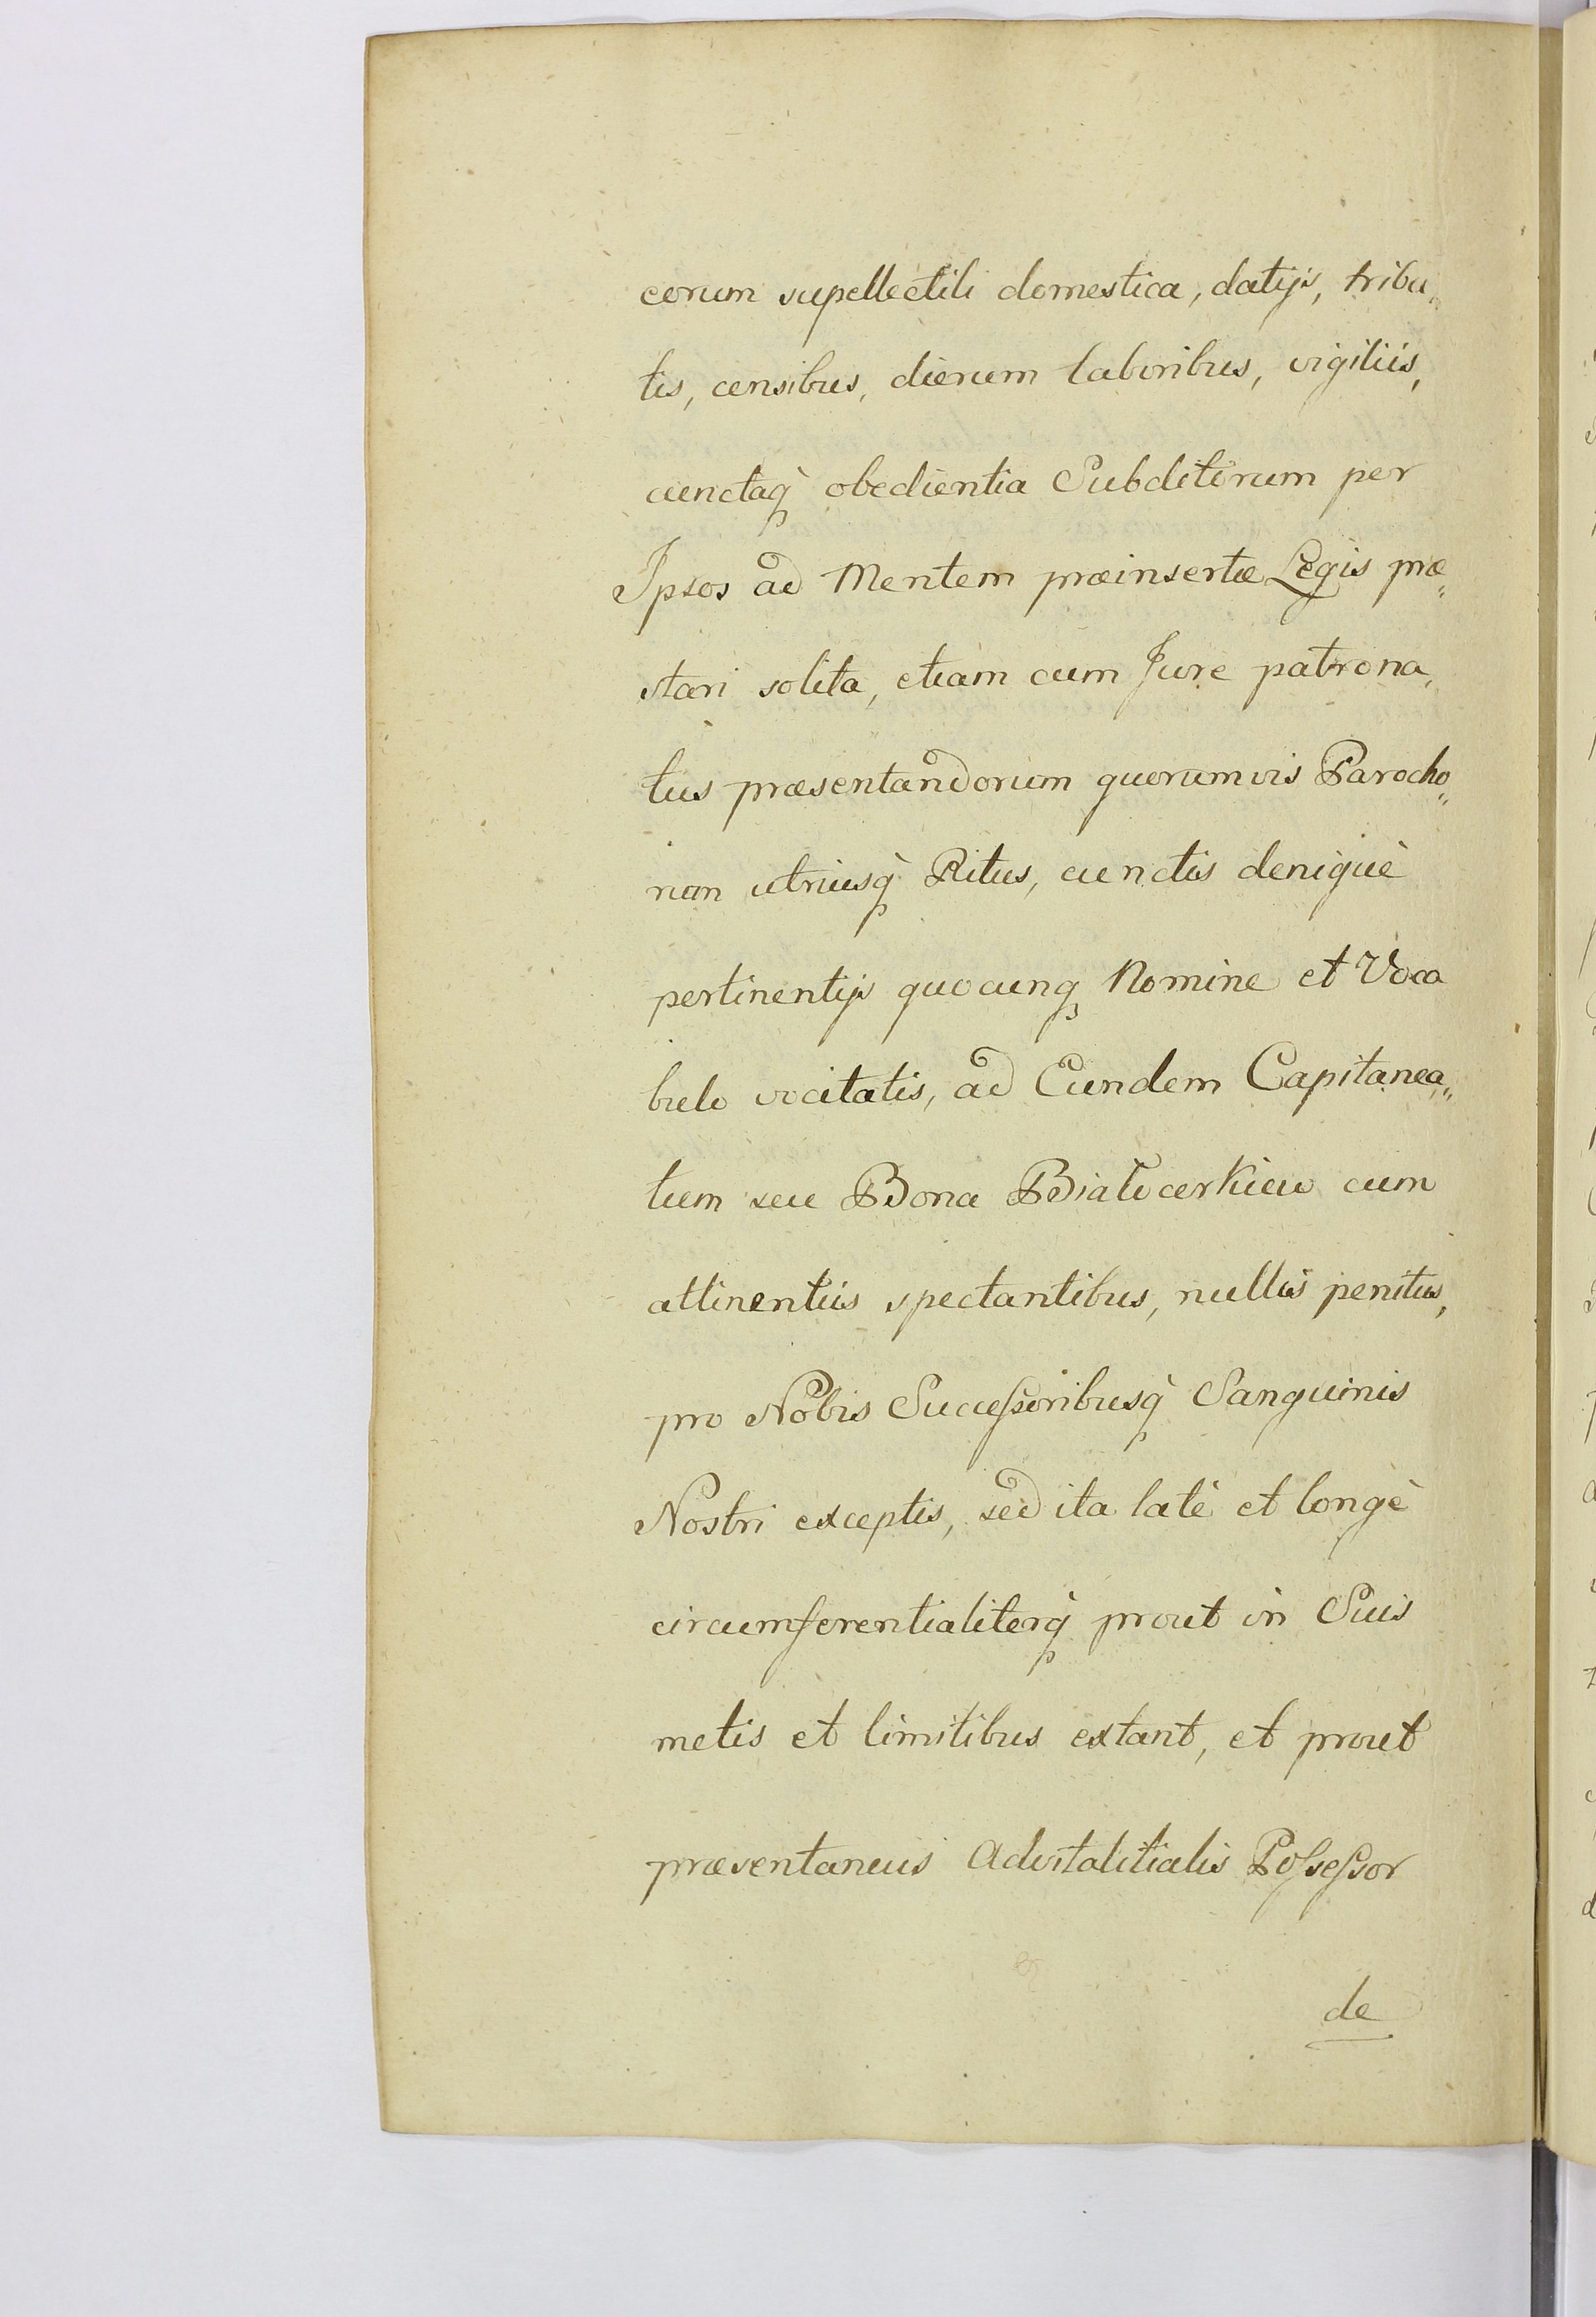 eorum supellectili domestica, datijs, tribu„
tis, censibus, dierum laboribus, vigiliis,
cunctaq̀ obedientia Subditorum per
Ipsos ad Mentem præinsertæ Legis præ„
stari solita, etiam cum Jure patrona„
tus præsentandorum quorumvis Parocho„
rum utriusq̀ Ritus, cunctis deniquè
pertinentijs quocunq̀ Nomine et Voca
bulo vocitatis, ad Eundem Capitanea„
tum seu Bona Białocerkiew cum
attinentiis spectantibus, nullis penitus,
pro Nobis Succeſsoribusq̀ Sanguinis
Nostri exceptis, sed ita latè et longè
circumferentialiterq̀ prout in Suis
metis et limitibus extant, et prout
præsentaneus Advitalitialis Poſseſsor
de